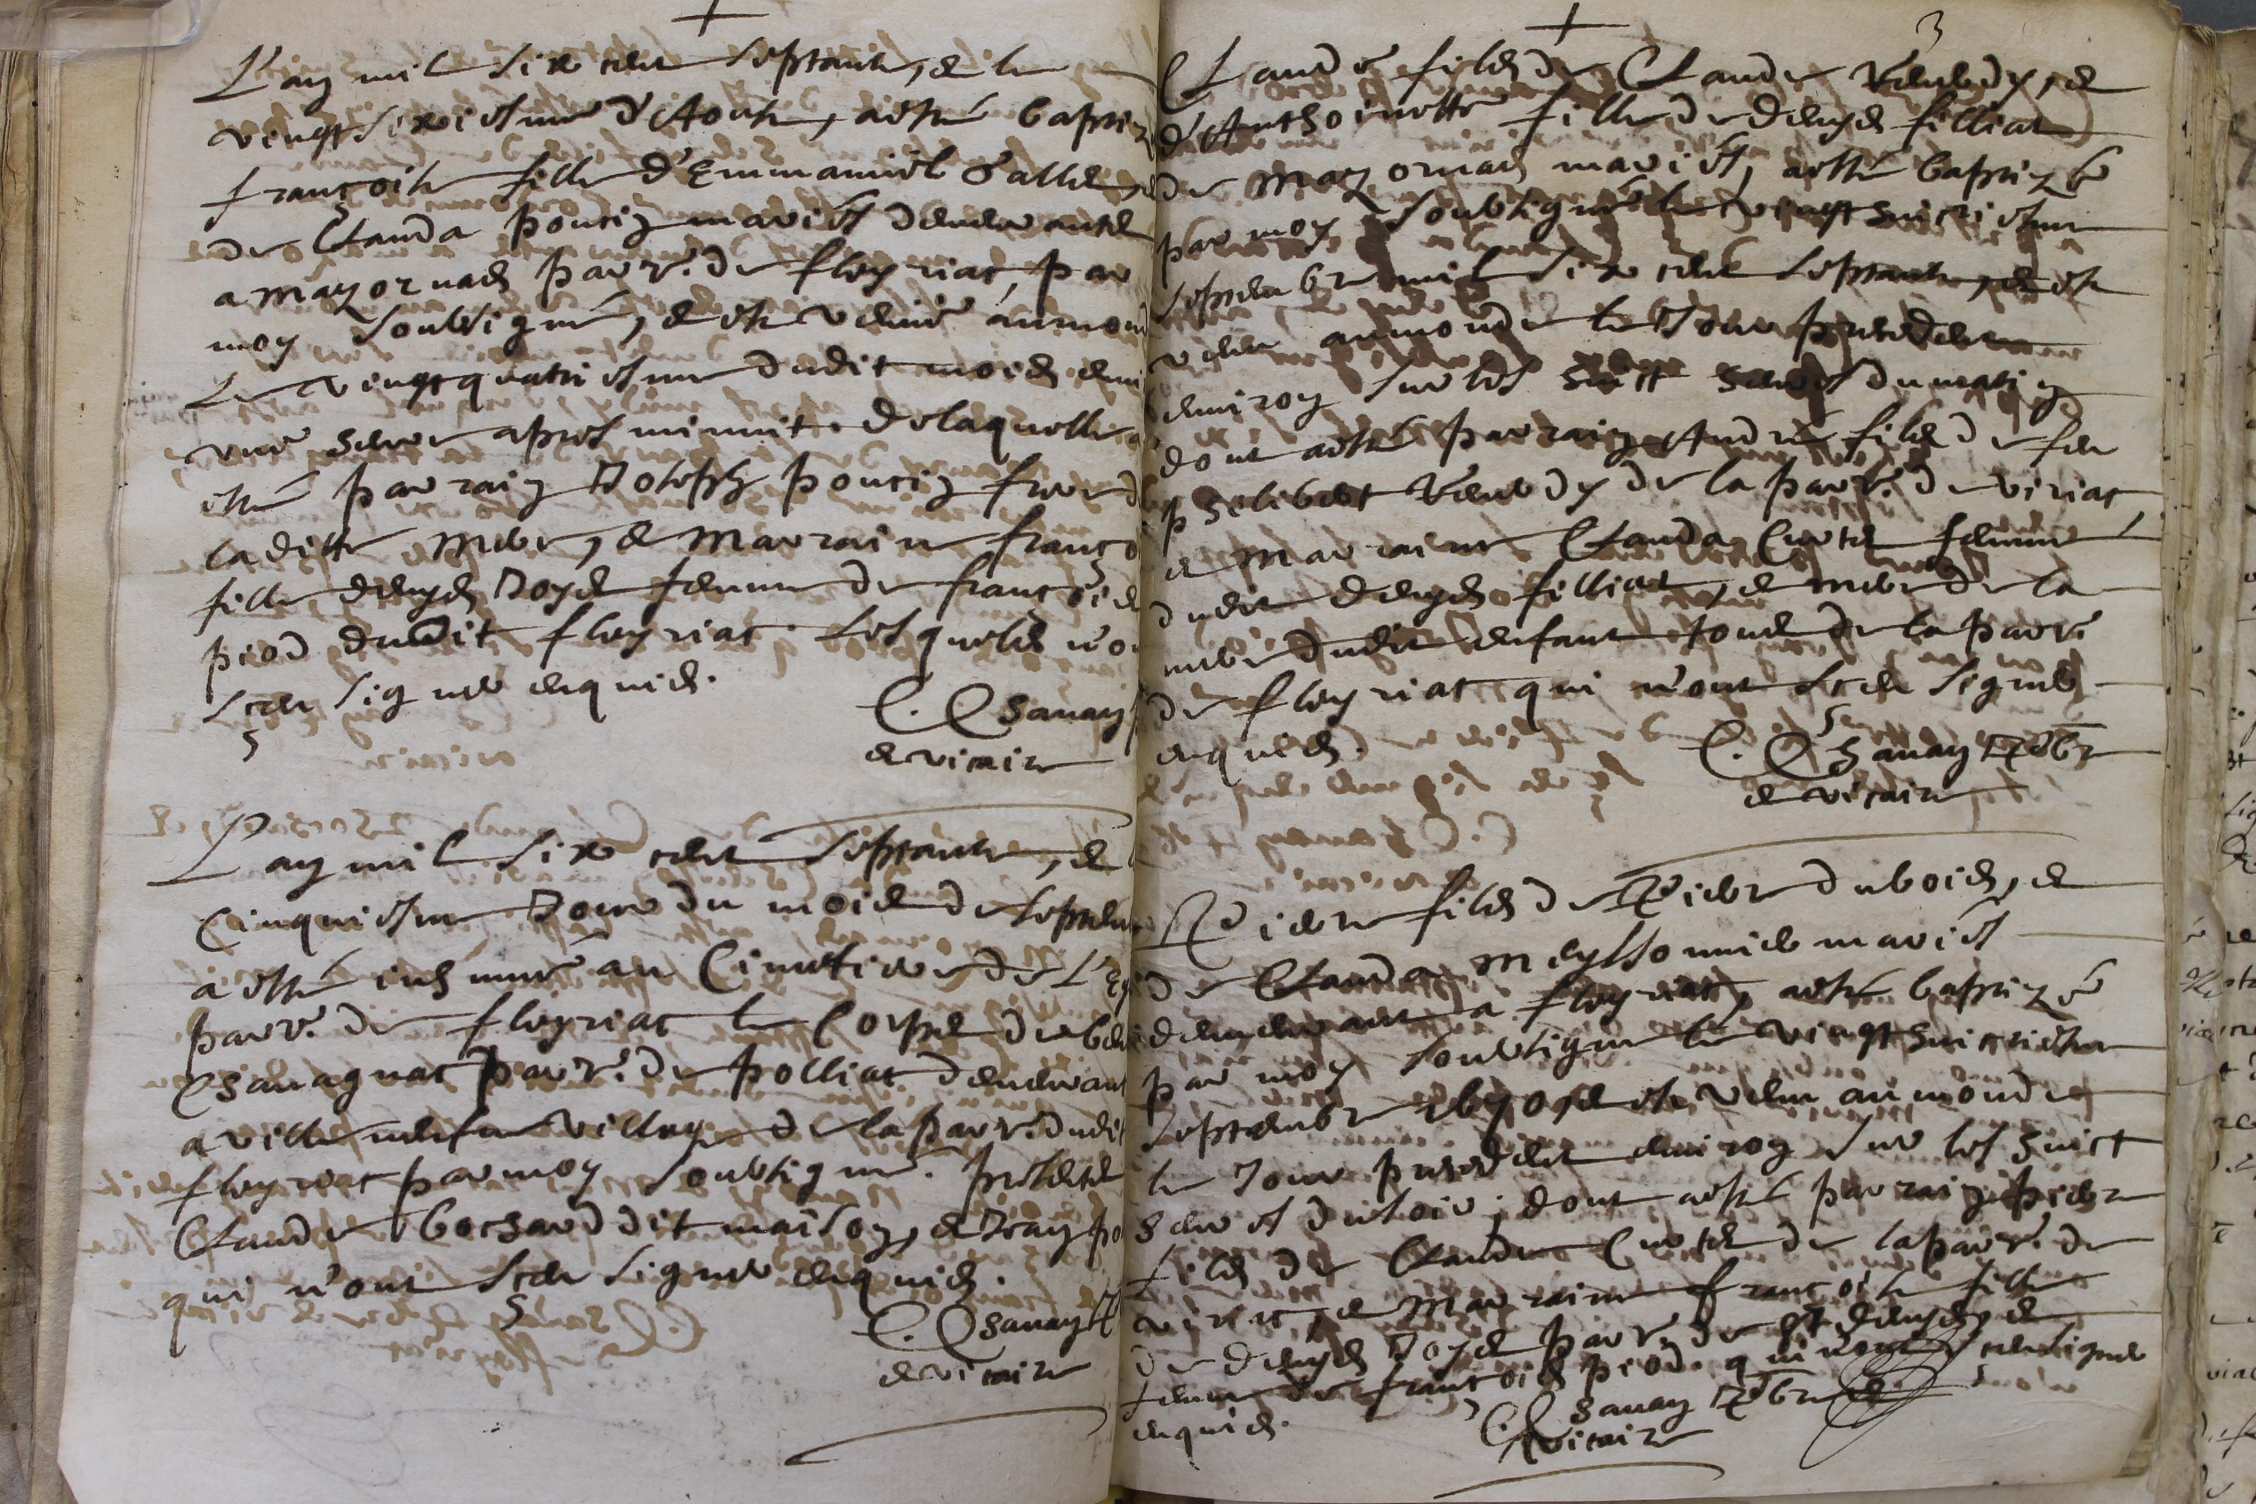 L'an mil six cent septante, et le
vingtsixiesme d'Aoust, a esté bapti
françoise fille d'Emmanuel
de Clauda poncin mariés demeurantz
a mayornas parr. de fleyriac, par
moy soubsigné, et est venue au mond
le vingtquatriesme dudit mois envi
une heure apres minuit. de laquelle a
esté parrain Joseph poncin frere d
laditte mere, et marraine franço
fille denys Joye femme de françois
piod dudit fleyriac. lesquels n'o
sceu signer enquis.
C. Chanay
et vicaire
L'an mil six cent septante, et
Cinquiesme Jour du mois de septem
a esté enhumé au Cimetiere de L'eg
parr. de fleyriac le Corps de
Chanagnat parr. de polliac demeurant
a villeneufve village de la parr. dudit
fleyriac par moy soubsigné. presents
Claude bochard dit maison, et Jean
qui n'ont sceu signer enquis.
C. Chanay
et vicaire
3
Claude fils de Claude Venerdy, et
d'Anthoinette fille de denys filliat
de mayornas mariés, a esté baptizé
par moy soubsigné le vingt huictiesme
septembre mil six cent septante, et est
venu au monde le Jour precedent
environ sur les huict heures du matin
dont a esté parrain André fils de feu
philibert Venerdy de la parr. de viriac,
et marraine Clauda Curtet femme
dudit denys filliat, et mere de la
mere dudit enfant tous de la parr.
de fleyriac qui n'ont sceu signer
enquis.
C. Chanay ptbre
et vicaire
Pierre fils de Pierre dubois, et
de Clauda meyssonnier mariés
demeurant a fleyriac, a esté baptizé
par moy soubsigné le vingt huictiesme
septembre 1670, et est venu au monde
le Jour precedent environ sur les huict
heures du soir; dont a esté parrain pierre
fils de Claude Curtet de la parr. de
viriac, et marraine françoise fille
de denys Joye parr. de st denys, et
femme de françois piod. qui n'ont sceu signer
enquis.
C. Chanay ptbre et
vicaire